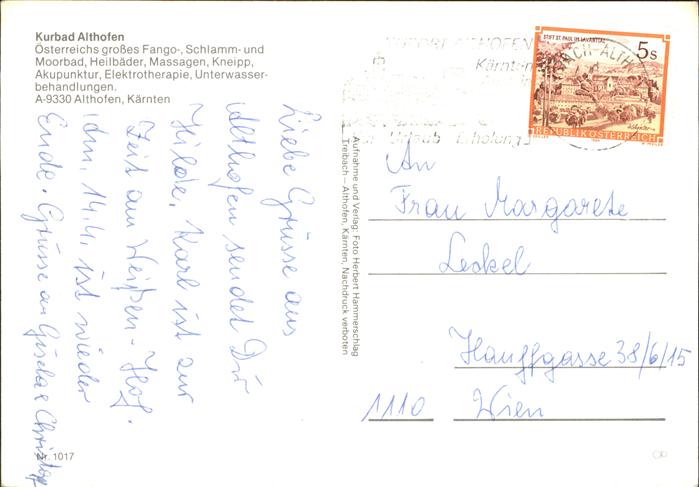 Kurbad Althofen
Österreichs großes Fango-, Schlamm- und
Moorbad, Heilbäder, Massagen, Kneipp,
Akupunktur, Elektrotherapie, Unterwasser-
behandlungen.
A-9330 Althofen, Kärnten
Liebe Grüsse aus
Althofen sendet Dir
Hilde. Karl ist zur
Zeit am Weißen-Hof.
Am 14.4. ist wieder
Ende. Grüsse an Gisela & Christoph
Nr. 1017
Aufnahme und Verlag: Foto Herbert Hammerschlag
Treibach – Althofen, Kärnten, Nachdruck verboten
ALTHOFEN
Kärnten
Urlaub Erholung
STIFT ST. PAUL IM LAVANTTAL
5 S
REPUBLIK ÖSTERREICH
An
Frau Margarete
Leckel
Hauffgasse 38/6/15
1110 Wien